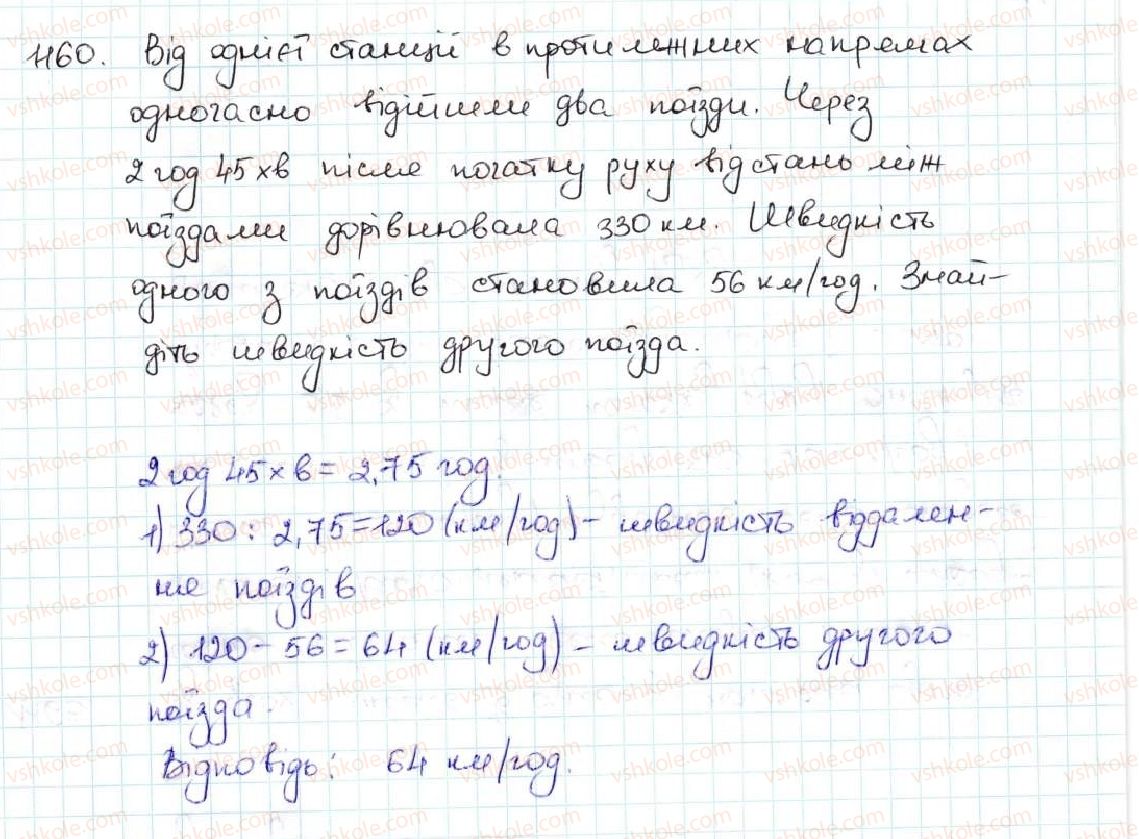 1160. Від однієї станції в протилежних напрямах
одночасно відійшли два поїзди. Через
2 год 45 хв після початку руху відстань між
поїздами дорівнювала 330 км. Швидкість
одного з поїздів становила 56 км/год. Знай-
діть швидкість другого поїзда.
2 год 45 хв = 2,75 год.
1) 330 : 2,75 = 120 (км/год) - швидкість віддален-
ня поїздів
2) 120 - 56 = 64 (км/год) - швидкість другого
поїзда.
Відповідь: 64 км/год.